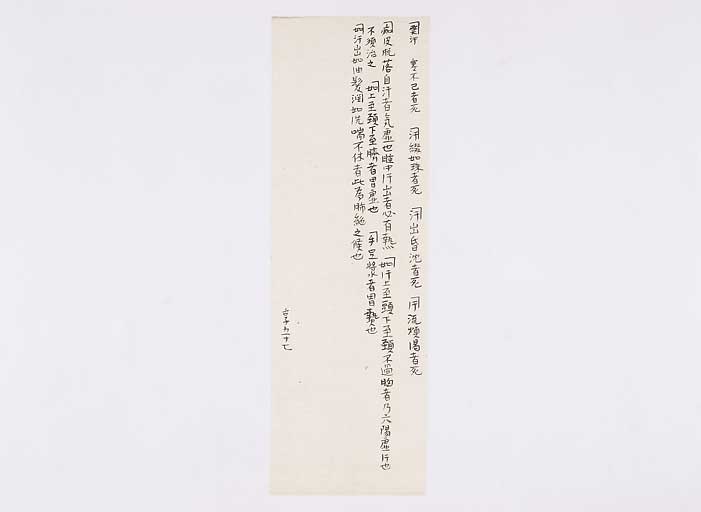 汗 寒不已者死 汗綴如珠者死 汗出昏沈者死 汗流煩渴者死
皮脫落自汗者気虛也睡中汗出者必有熱 如汗上至頭下至頸不過胸者乃六陽虛汗也
不須治之 如上至頭下至臍者胃虛也 手足將水者胃熱也
如汗出如油髮潤如洗喘不休者此為肺絕之候也